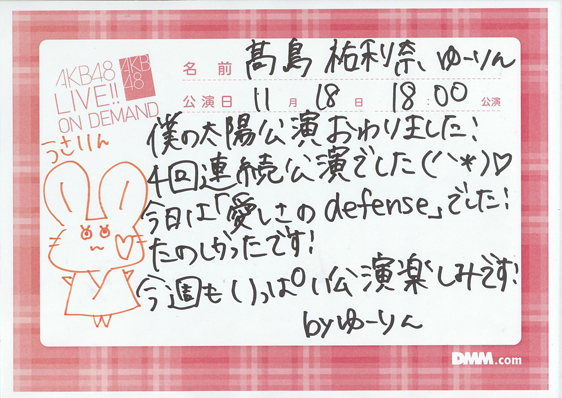 AKB48
LIVE!!
ON DEMAND
AKB
48
名前 髙島 祐利奈、ゆーりん
公演日 11月18日 18:00公演
うさりん
僕の太陽公演おわりました!
4回連続公演でした(^*)♡
今日は「愛しさのdefense」でした!
たのしかったです!
今週もいっぱい公演楽しみです!
byゆーりん
DMM.com